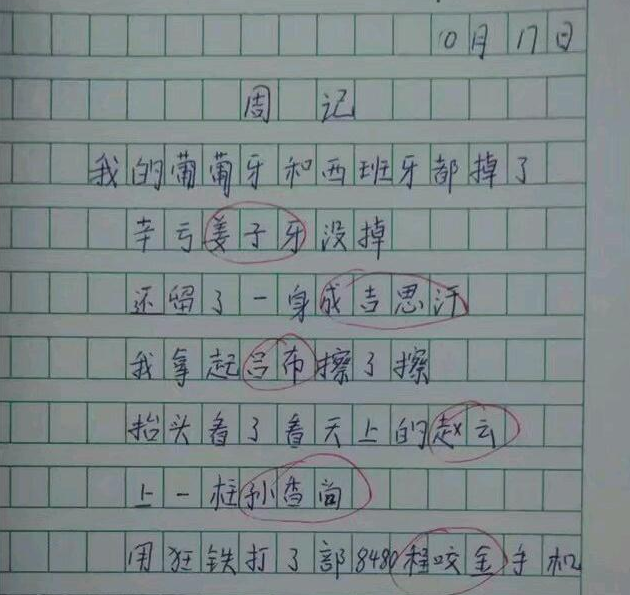 10月17日
周记
我的葡葡牙和西班牙都掉了
幸亏姜子牙没掉
还留了一身成吉思汗
我拿起吕布擦了擦
抬头看了看天上的赵云
上一柱孙香尚
用狂铁打了部8480程咬金手机